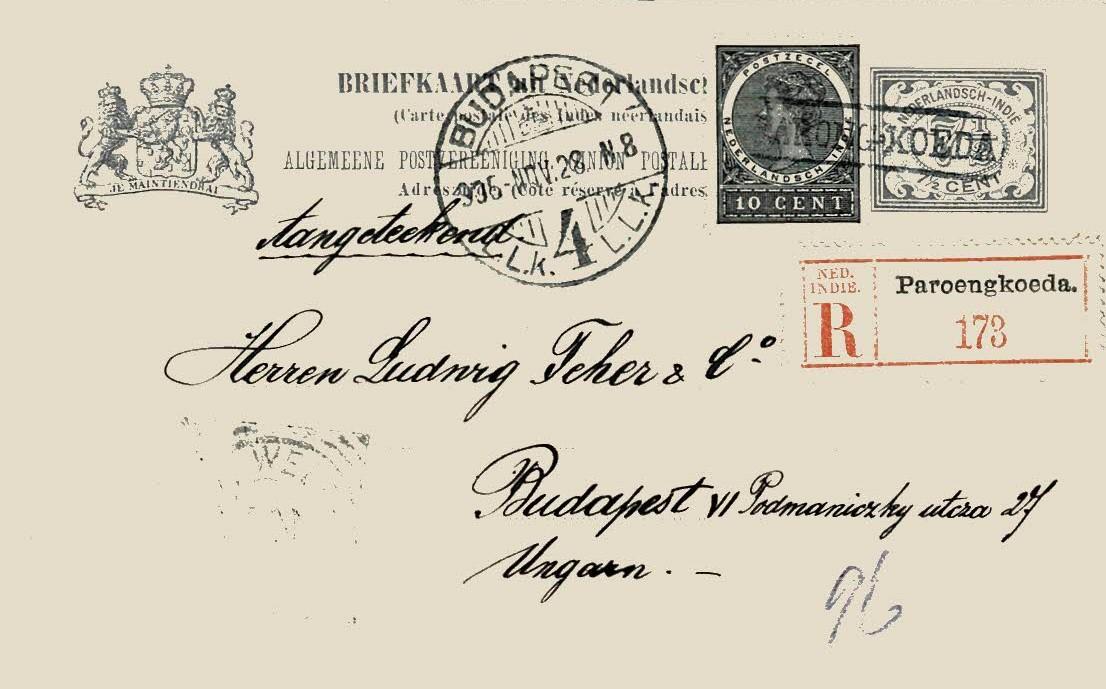 BRIEFKAART uit Nederlandsch
(Carte postale des Indes néerlandais
ALGEMEENE POSTVEREENIGING (UNION POSTALE
Adreszijde. (Côté réservé à l'adres
JE MAINTIENDRAI
BUDAPEST
905 NOV. 28. N. 8
4
L.L.K. L.L.K.
POSTZEGEL
NEDERLANDSCH-INDIË
10 CENT
NEDERLANDSCH-INDIË
7½ CENT
PAROENGKOEDA
Aangeteekend
NED. INDIE.
R
Paroengkoeda.
173
Herren Ludwig Feher & Co
Budapest VI Podmaniczky utcza 27
Ungarn. —
96
WE